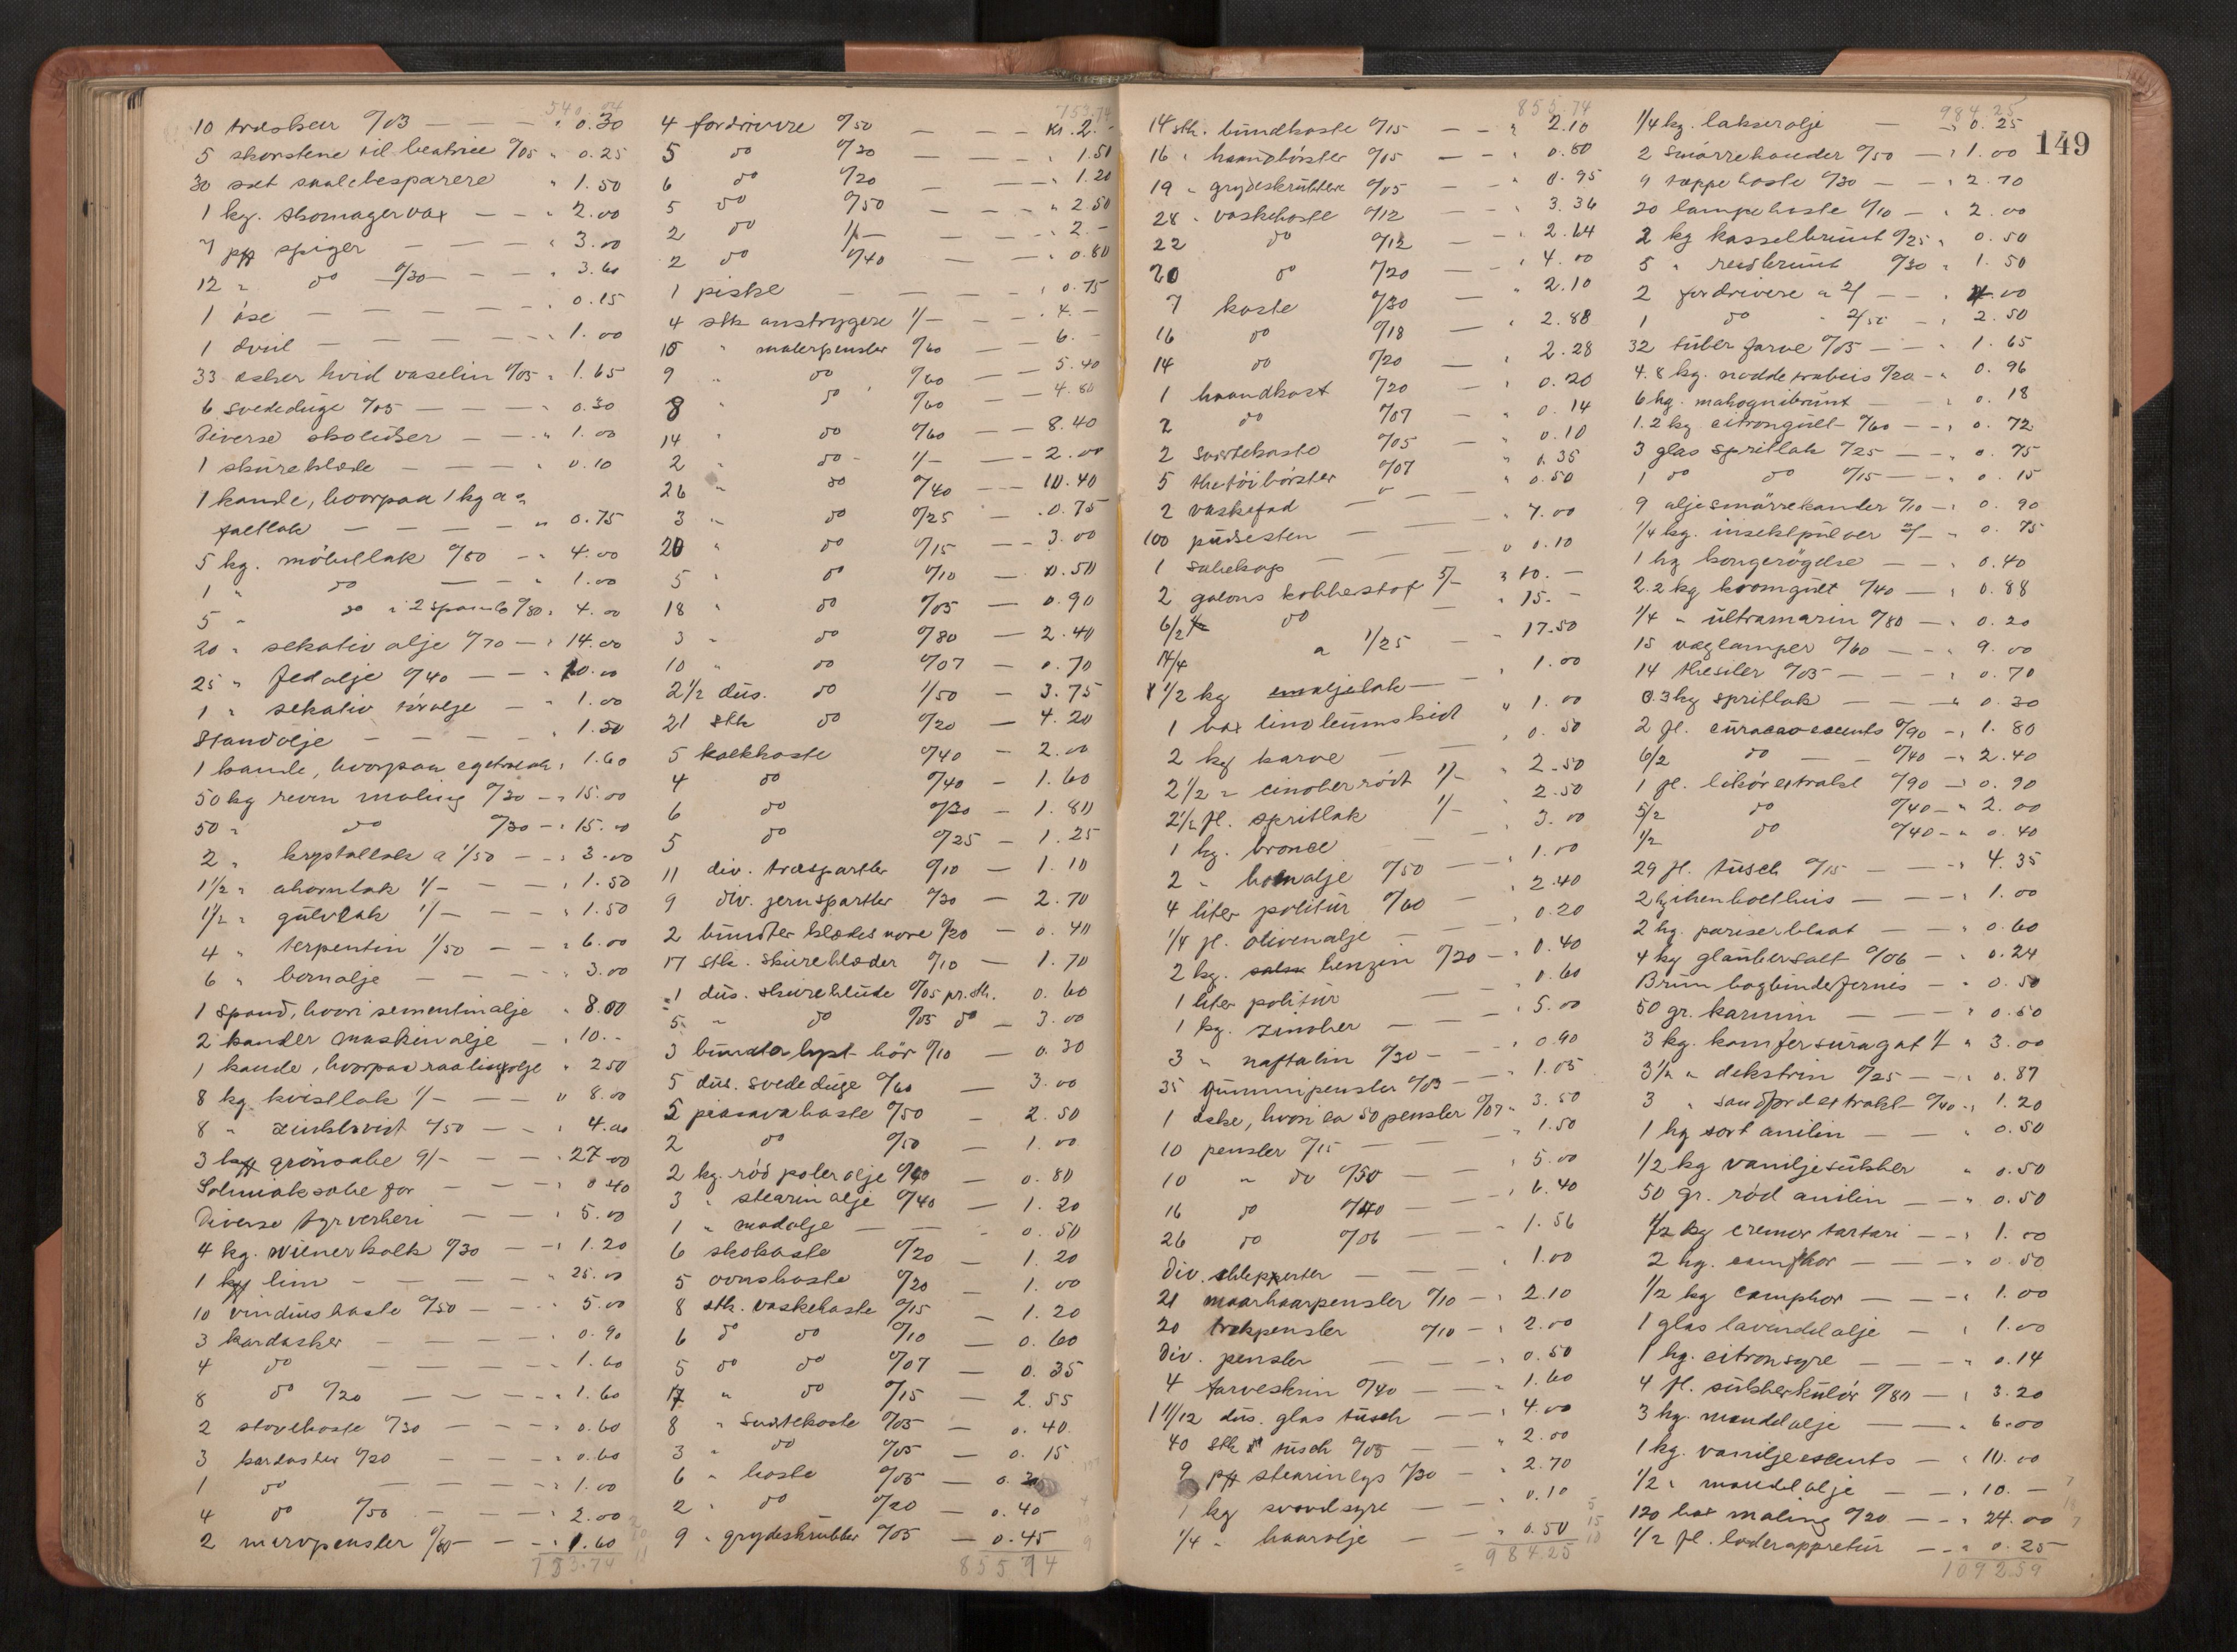 540.04
10 træskeer 0/03 — — — " 0.30
5 skorstene til beatrice 0/05 " 0.25
30 sæt saalebesparere " 1.50
1 kg. skomagervax — — " 2.00
7 pk spiger — — — " 3.00
12 " do 0/30 — — " 3.60
1 øse — — — — " 0.15
1 dviil — — — — " 1.00
33 æsker hvid vaselin 0/05 " 1.65
6 svededuge 0/05 — — — " 0.30
Diverse skolidser — — " 1.00
1 skureklæde — — — " 0.10
1 kande, hvorpaa 1 kg a
— — — — " 0.75
5 kg. möbellak 0/80 — " 4.00
1 " do — — " 1.00
5 " do i 2 spand 0/80 " 4.00
20 " sekativ olje 0/70 — " 14.00
25 " fedolje 0/40 — — " 10.00
1 " sekativ törolje — " 1.00
Standolje — — — — " 1.50
1 kande, hvorpaa egetrælak " 1.60
50 kg reven maling 0/30 — " 15.00
50 " do 0/30 — " 15.00
2 " krystallak a 1/50 — — " 3.00
1 1/2 " ahornlak 1/- — — " 1.50
1 1/2 " gulvlak 1/- — — — " 1.50
4 " terpentin 1/50 — — " 6.00
6 " benolje — — — — " 3.00
1 spand, hvori sementinolje " 8.00
2 kander maskinolje — " 10.-
1 kande, hvorpaa raalinolje " 2.50
8 kg kvistlak 1/- — — " 8.00
8 " zinkhvidt 0/50 — — " 4.00
3 grönsabe 9/- — — — " 27.00
Salmiaksabe for — — — " 0.40
Diverse fyrverkeri — — " 5.00
4 kg. wienerkalk 0/30 — — " 1.20
1 lim — — — — " 25.00
10 vinduskoste 0/50 — — " 5.00
3 kardasker — — — — " 0.90
4 do — — — — " 1.60
8 do 0/20 — — — " 1.60
2 støvekoste 0/30 — — — " 0.60
3 kardasker 0/20 — " 0.60
1 do — — — — " 1.00
4 do 0/50 — — — " 2.00
2 marvpensler 0/80 — — " 1.60
753.74
753.74
4 fordrivere 0/50 — — — kr. 2.-
5 do 0/30 — — — " 1.50
6 do 0/20 — — " 1.20
5 do 0/50 — — — " 2.50
2 do 1/- — — — 2.-
2 do 0/40 — — " 0.80
1 piske — — — — " 0.75
4 stk anstrygere 1/- — — " 4.-
10 " malerpensler 0/60 — — 6.-
9 " do 0/60 — — 5.40
8 " do 0/60 — — 4.80
14 " do 0/60 — — 8.40
2 " do 1/- — — 2.00
26 " do 0/40 — — 10.40
3 " do 0/25 — 0.75
20 " do 0/15 — — 3.00
5 " do 0/10 — 0.50
18 " do 0/05 — 0.90
3 " do 0/80 — 2.40
10 " do 0/07 — 0.70
2 1/2 dus. do 1/50 — 3.75
21 stk do 0/20 — 4.20
5 kalkkoste 0/40 — 2.00
4 do 0/40 — 1.60
6 do 0/30 — 1.80
5 do 0/25 — 1.25
11 div. træspartler 0/10 — 1.10
9 div. jernspartler 0/30 — 2.70
2 bundter klædesnore 0/20 — 0.40
17 stk. skureklæder 0/10 — 1.70
1 dus. skureklude 0/05 pr. stk. 0.60
5 " do 0/05 do — 3.00
3 bundter lyst hör 0/10 — 0.30
5 dus. svededuge 0/60 — 3.00
5 piasavakoste 0/50 — 2.50
2 do 0/50 — 1.00
2 kg. röd polerolje 0/40 — 0.80
3 " stearinolje 0/40 — 1.20
1 " madolje — — — 0.50
6 skokoste 0/20 — 1.20
5 ovnskoste 0/20 — 1.00
8 stk. vaskekoste 0/15 — 1.20
6 do do 0/10 — 0.60
5 do do 0/07 — 0.35
17 " do 0/15 — 2.55
8 " svertekoste 0/05 — 0.40
3 " do 0/05 — 0.15
6 " koste 0/05 — 0.30
2 " do 0/20 — 0.40
9 " grydeskrubber 0/05 — 0.45
855.74
855.74
14 stk. bundkoste 0/15 — — " 2.10
16 " haandbörster 0/05 — — " 0.80
19 " grydeskrubber 0/05 — " 0.95
28 " vaskekoste 0/12 — — " 3.36
22 do 0/12 — " 2.64
20 do 0/20 — " 4.00
7 koste 0/30 — " 2.10
16 do 0/18 — " 2.88
14 do 0/20 — " 2.28
1 haandkost 0/20 — " 0.20
2 do 0/07 — " 0.14
2 svertekoste 0/05 — " 0.10
5 thetöibörster 0/07 " 0.35
2 vaskefad — — — " 0.50
100 pudsesten — — " 7.00
1 sabekop — — " 0.10
2 galons kobberstof 5/- " 10.-
6/2 do " 15.-
14/4 a 1/25 — " 17.50
1 1/2 kg emaljelak — " 1.00
1 box linoleumskit " 1.00
2 kg karve — " 0.50
2 1/2 " cinoberrödt 1/- " 2.50
2 1/2 fl. spritlak 1/- " 2.50
1 kg. bronce — — " 3.00
2 " benolje 0/50 — " 1.00
4 liter politur 0/60 — " 2.40
1/4 fl. olivenolje — — " 0.20
2 kg. benzin 0/20 — " 0.40
1 liter politur — " 0.60
1 kg. zinober — — " 5.00
3 " naftalin 0/30 — " 0.90
35 gummipensler 0/03 — " 1.05
1 æske, hvori ca 50 pensler 0/07 " 3.50
10 pensler 0/15 — — " 1.50
10 " do 0/50 — — " 5.00
16 do 0/40 — — " 6.40
26 do 0/06 — — " 1.56
Div. — — — " 1.00
21 maarhaarpensler 0/10 — " 2.10
20 trækpensler 0/10 — " 2.00
Div. pensler — — — " 0.50
4 farveskrin 0/40 — — " 1.60
1 11/12 dus. glas tusch — — " 4.00
40 stk do tusch 0/05 — — " 2.00
9 pk stearinlys 0/30 — " 2.70
1 kg svovelsyre — — " 0.10
1/4 " haarolje — — " 0.50
984.25
984.25
149
1/4 kg. lakserolje — " 0.25
2 smörrekander 0/50 — " 1.00
9 tæppekoste 0/30 — — " 2.70
20 lampekoste 0/10 — " 2.00
2 kg kasselbrunt 0/25 " 0.50
5 " rensbrunt 0/30 " 1.50
2 fordrivere a 2/ — — " 4.00
1 do " 2/50 — " 2.50
32 tuber farve 0/05 — — " 1.65
4.8 kg. nöddetræbeis 0/20 — " 0.96
6 hg. mahognibrunt — — " 0.18
1.2 kg citrongult 0/60 — — " 0.72
3 glas spritlak 0/25 — — " 0.75
1 do do 0/15 — — " 0.15
9 oljesmörrekander 0/10 — " 0.90
1/4 kg. insektpulver 3/- — " 0.75
1 kg kongerögelse — — " 0.40
2.2 kg kromgult 0/40 — " 0.88
1/4 " ultramarin 0/80 — " 0.20
15 væglamper 0/60 — — " 9.00
14 thesiler 0/05 — — — " 0.70
0.3 kg spritlak — — — " 0.30
2 fl. curacaoesents 0/90 — " 1.80
6/2 do — — 0/40 — " 2.40
1 fl. likörextrakt 0/90 — " 0.90
5/2 do 0/40 — " 2.00
1/2 do 0/40 — " 0.40
29 fl. tusch 0/15 — — " 4.35
2 — — — " 1.00
2 hg. pariserblaat — — " 0.60
4 kg glaubersalt 0/06 — " 0.24
Brun bogbinderfernis — " 0.50
50 gr. karmin — — — " 0.50
3 kg. kamfersuragat 1/ " 3.00
3 1/2 " dekstrin 0/25 — — " 0.87
3 " 0/40 — " 1.20
1 hg sort anilin — — " 0.50
1/2 kg vaniljesukker " 0.50
50 gr. röd anilin — — " 0.50
1/2 kg cremor tartari — — " 1.00
2 hg. camphor — — — " 0.50
1/2 kg camphor — — — " 1.00
1 glas lavendelolje — " 1.00
1 hg. citronsyre — — — " 0.14
4 fl. sukkerkulör 0/80 — " 3.20
3 hg. mandelolje — — " 6.00
1 kg. vaniljeesents — " 10.00
1/2 " mandelolje — — " 10.-
120 box maling 0/20 — — " 24.00
1/2 fl. læderappretur — — " 0.25
1092.59